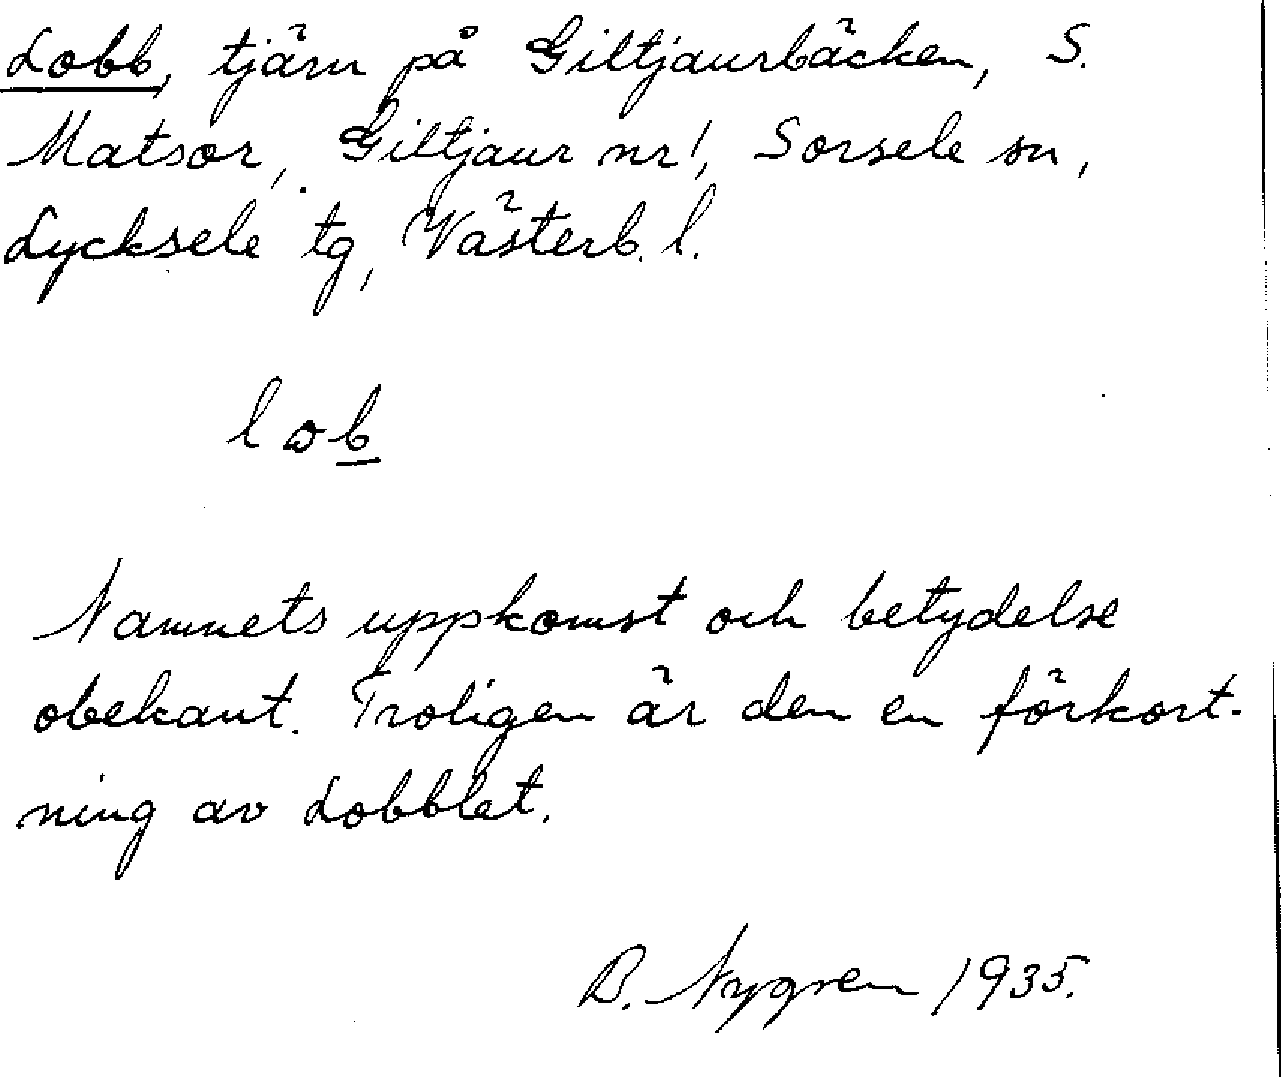 Lobb, tjärn på Giltjaurbäcken, S.
Matsor, Giltjaur nr 1, Sorsele sn,
Lycksele tg, Västerb. l.
lob
Namnets uppkomst och betydelse
obekant. Troligen är den en förkort-
ning av Lobblet.
B. Nygren 1935.